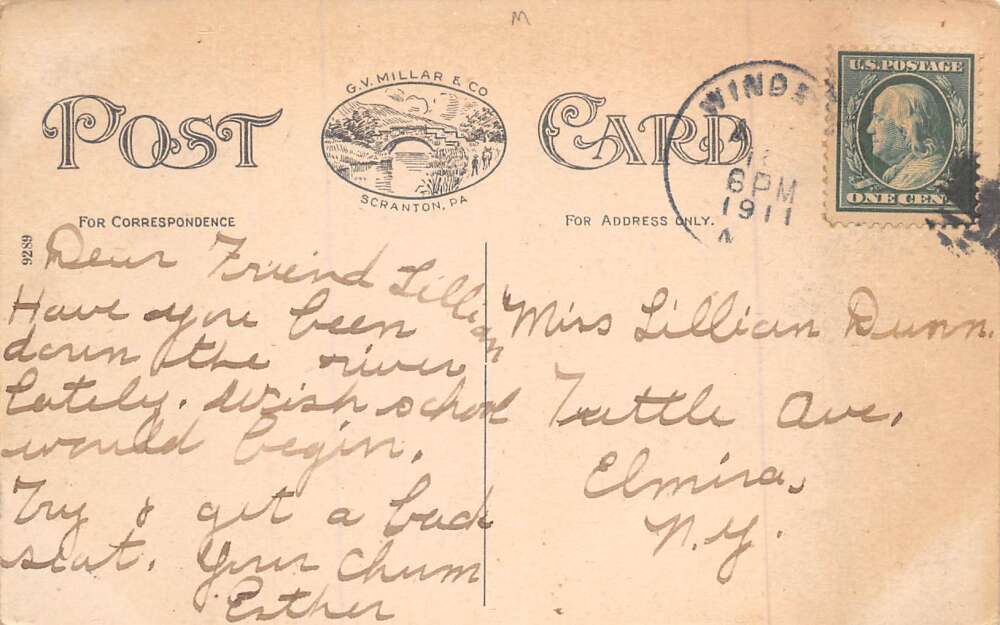 M
POST CARD
G.V. MILLAR & CO
SCRANTON, PA
FOR CORRESPONDENCE
FOR ADDRESS ONLY.
9289
WINDS
6PM
1911
U.S. POSTAGE
ONE CENT
Dear Friend Lillian
Have you been
down the river
lately. Wish school
would begin.
Try & get a back
seat. Your Chum
Esther
Miss Lillian Dunn.
Tuttle Ave,
Elmira,
N.Y.